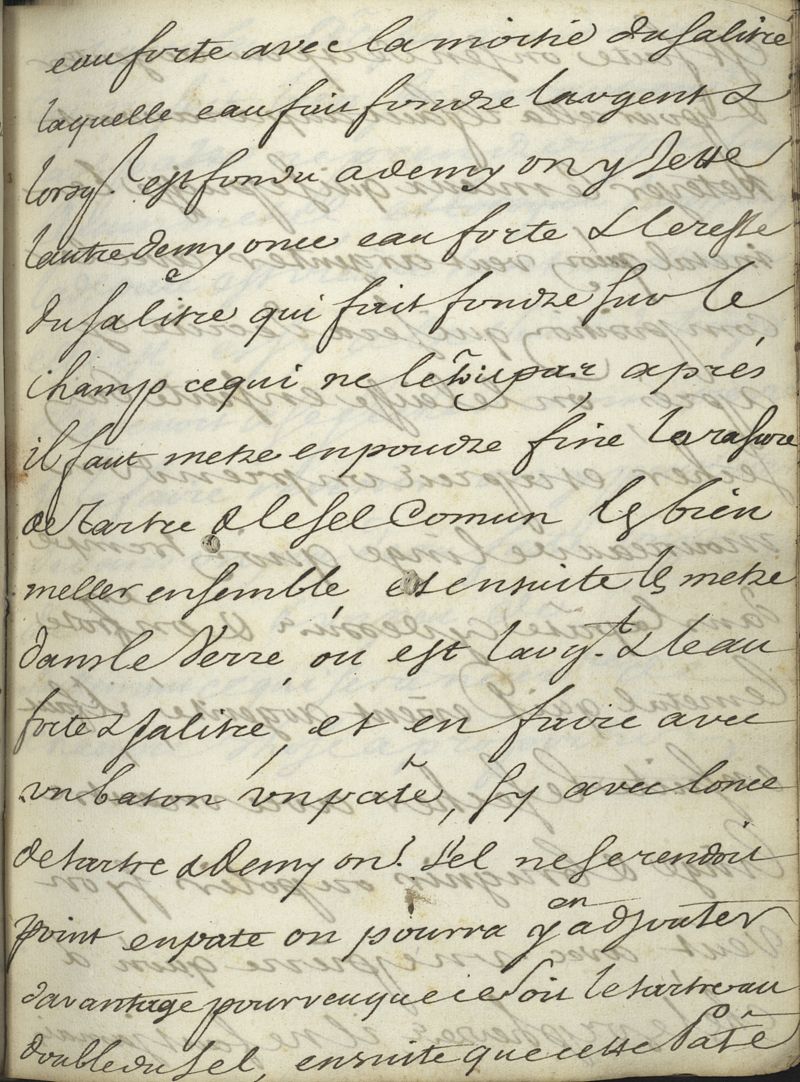 eau forte avec la moitié du salitre
laquelle eau fait fondre largent &
lorsql est fondu a demy on y Jette
lautre demy once eau forte & le reste
du salitre qui fait fondre sur le
champ ce qui ne pas, aprés
il faut metre en poudre fine la rasure
de tartre & le sel Comun les bien
meller ensemble, et ensuite les metre
dans le Verre, ou est largt. & leau
forte & salitre, et en faire avec
un baton un pate, sy avec lonce
de tartre & demy on: sel ne se rendoit
point en pate on pourra y en adjouter
davantage pourveu que ce soit le tartre au
double du sel, ensuite que cette Pate